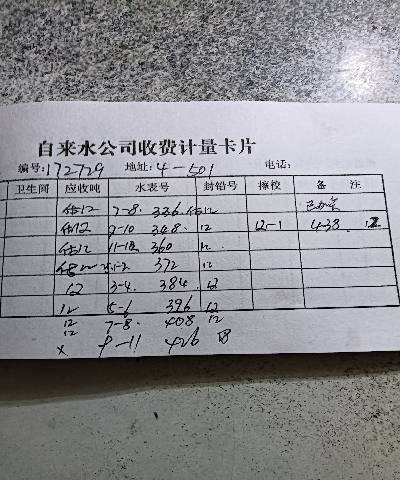 自来水公司收费计量卡片
编号:172729 地址:4-501 电话:
卫生间 应收吨 水表号 封铅号 擦校 备 注
估12 7-8. 336 估12
估12 9-10 348. 12 12-1 438. 12
估12 11-12 360 12
1-2 372 12
12 3-4. 384 12
12 5-6 396 12
12 7-8. 408 12
x 9-11 426 18